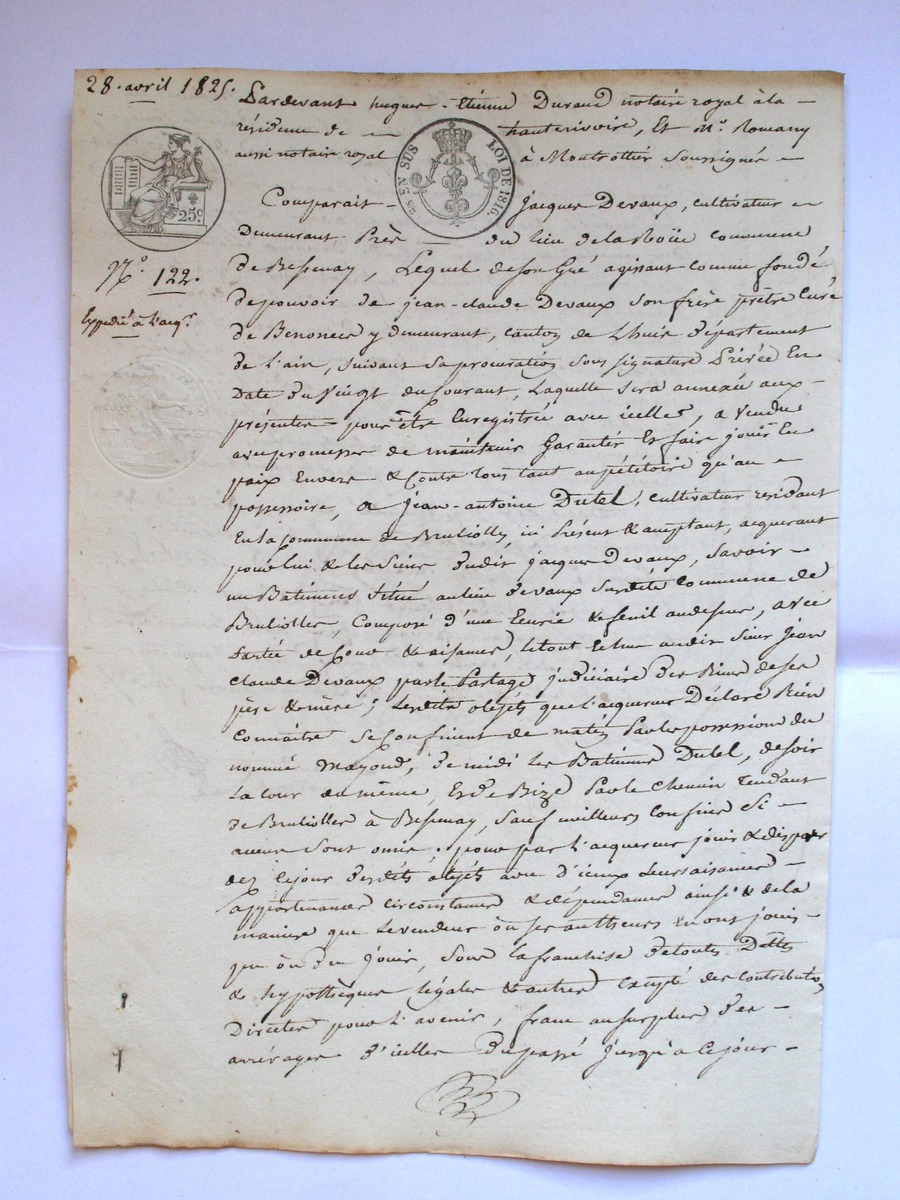 28. avril 1825.
Pardevant hugues-Etienne Durand notaire royal à la
résidence de hauterivoire, Et Mr. Romany
aussi notaire royal à Montrottier soussignés
25 EN SUS LOI DE 1816.
25c.
Comparait Jacques Devaux, cultivateur
Demeurant Près du lieu de la commune
N.o 122.
de Bessenay, Lequel de son Gré agissant comme fondé
Expédié à l'acqr.
de pouvoir de jean-claude Devaux son frère prêtre Curé
de y demeurant, canton de Lhuis Département
de l'ain, suivant sa procuration sous signature Privée En
Date du Vingt du Courant, Laquelle sera annexée aux
présentes pour être Enregistrée avec icelles, a Vendu
avec promesse de maintenir Garantir Et faire jouir En
paix Envers & Contre tous tant au pétitoire qu'au
possessoire, a Jean-antoine Dutel, cultivateur residant
En la Commune de Brullioles, ici Présent & acceptant, acquerant
pour lui & les Siens dudit jacques Devaux, savoir
un Batiment Situé au lieu Devaux susdite Commune de
Brullioles, Composé d'une Ecurie & fenil audessus, avec
Partie de Cour & aisances, le tout Echu audit sieur Jean
Claude Devaux par le Partage judiciaire des Biens de ses
père & mère; Lesdits objets que l'acquereur Déclare Bien
Connaître se Confinent de matin Par les possessions du
nommé Mayoud, de midi les Batimens Dutel, de soir
la cour du même, Et de Bize Par le Chemin Tendant
de Brullioles à Bessenay, Sauf meilleurs Confins Si
aucuns Sont omis. pour par l'acquereur jouir & disposer
dez Cejour desdits objets avec d'iceux Leurs aisances
appartenances circonstances & dépendances ainsi & de la
manière que Le vendeur ou ses autheurs En ont joui
que ou du jouir, Sous la franchise de toutes Dettes
& hypothèques légales & autres Excepté des Contributions
Directes pour l'avenir, franc au surplus des
arrérages d'icelles Du passé Jusqu'à Cejour